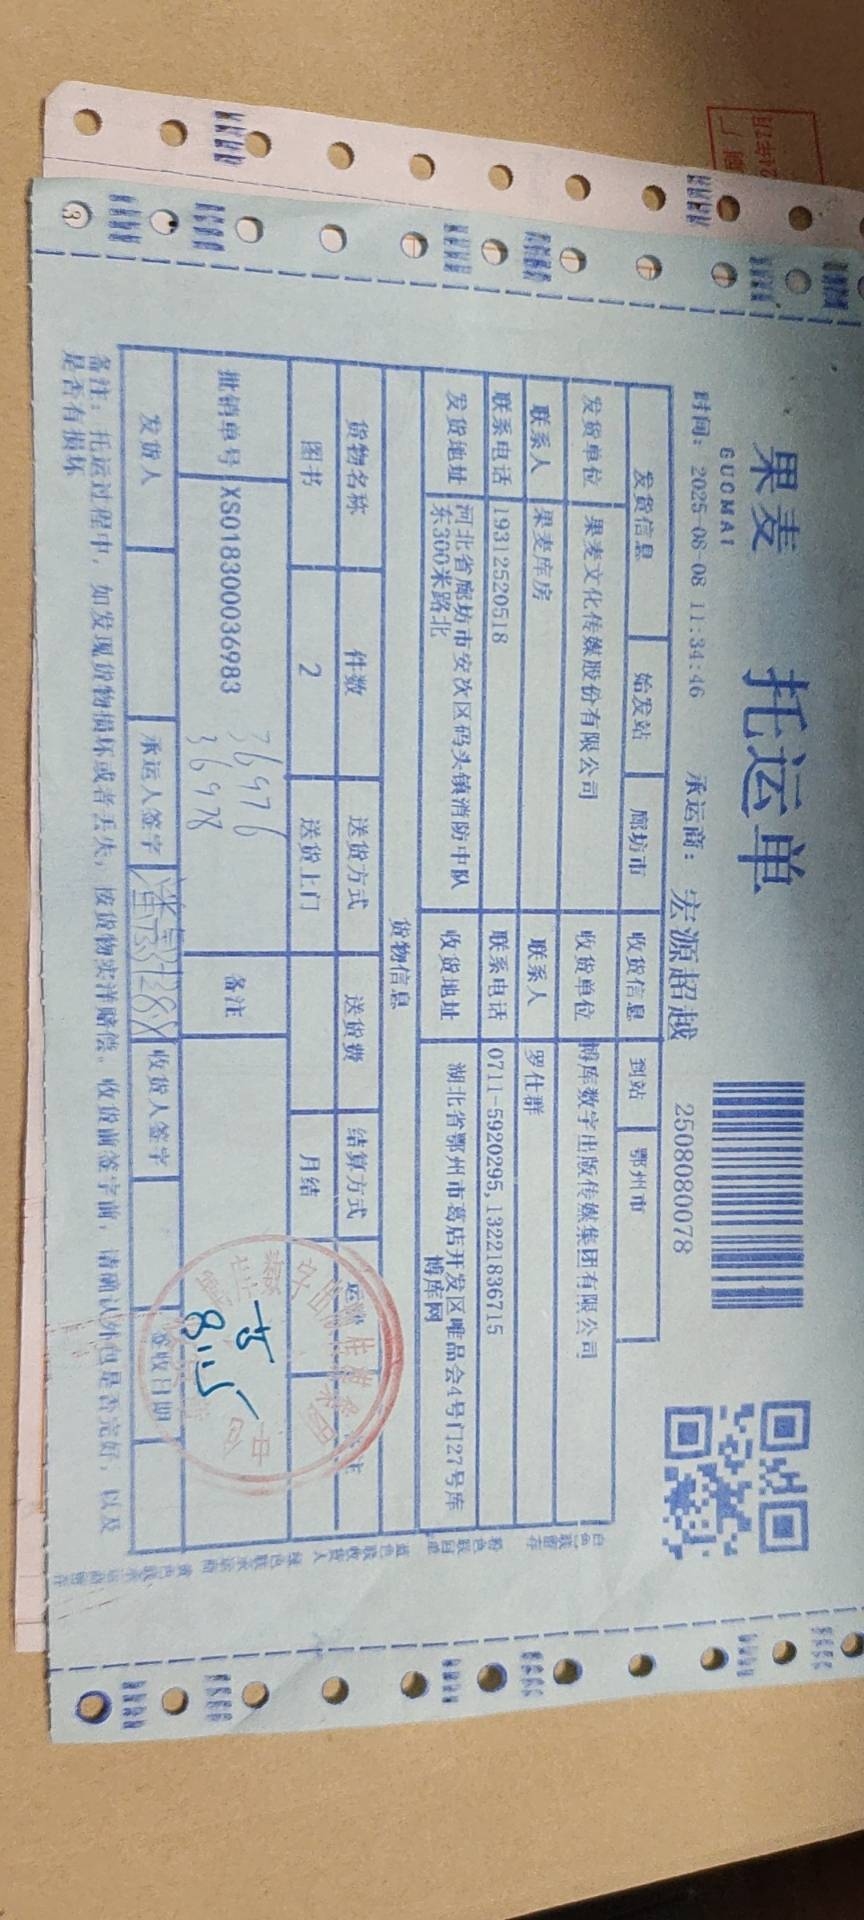 果麦
GUOMAI
托运单
时间: 2025-08-08 11:34:46 承运商: 宏源超越 2508080078
发货信息 始发站 廊坊市 收货信息 到站 鄂州市
发货单位 果麦文化传媒股份有限公司 收货单位 博库数字出版传媒集团有限公司
联系人 果麦库房 联系人 罗仕群
联系电话 19312520518 联系电话 0711-5920295,13221836715
发货地址 河北省廊坊市安次区码头镇消防中队东300米路北 收货地址 湖北省鄂州市葛店开发区唯品会4号门27号库博库网
货物信息
货物名称 件数 送货方式 送货费 结算方式
图书 2 送货上门 月结
批销单号 XS018300036983 备注
36976
36978
发货人 承运人签字 收货人签字 签收日期
备注: 托运过程中, 如发现货物损坏或者丢失, 按货物实洋赔偿。收货前签字前, 请确认外包是否完好, 以及
是否有损坏
白色联留存 粉色联回单 蓝色联收货人 绿色联承运商 黄色联承运商留存